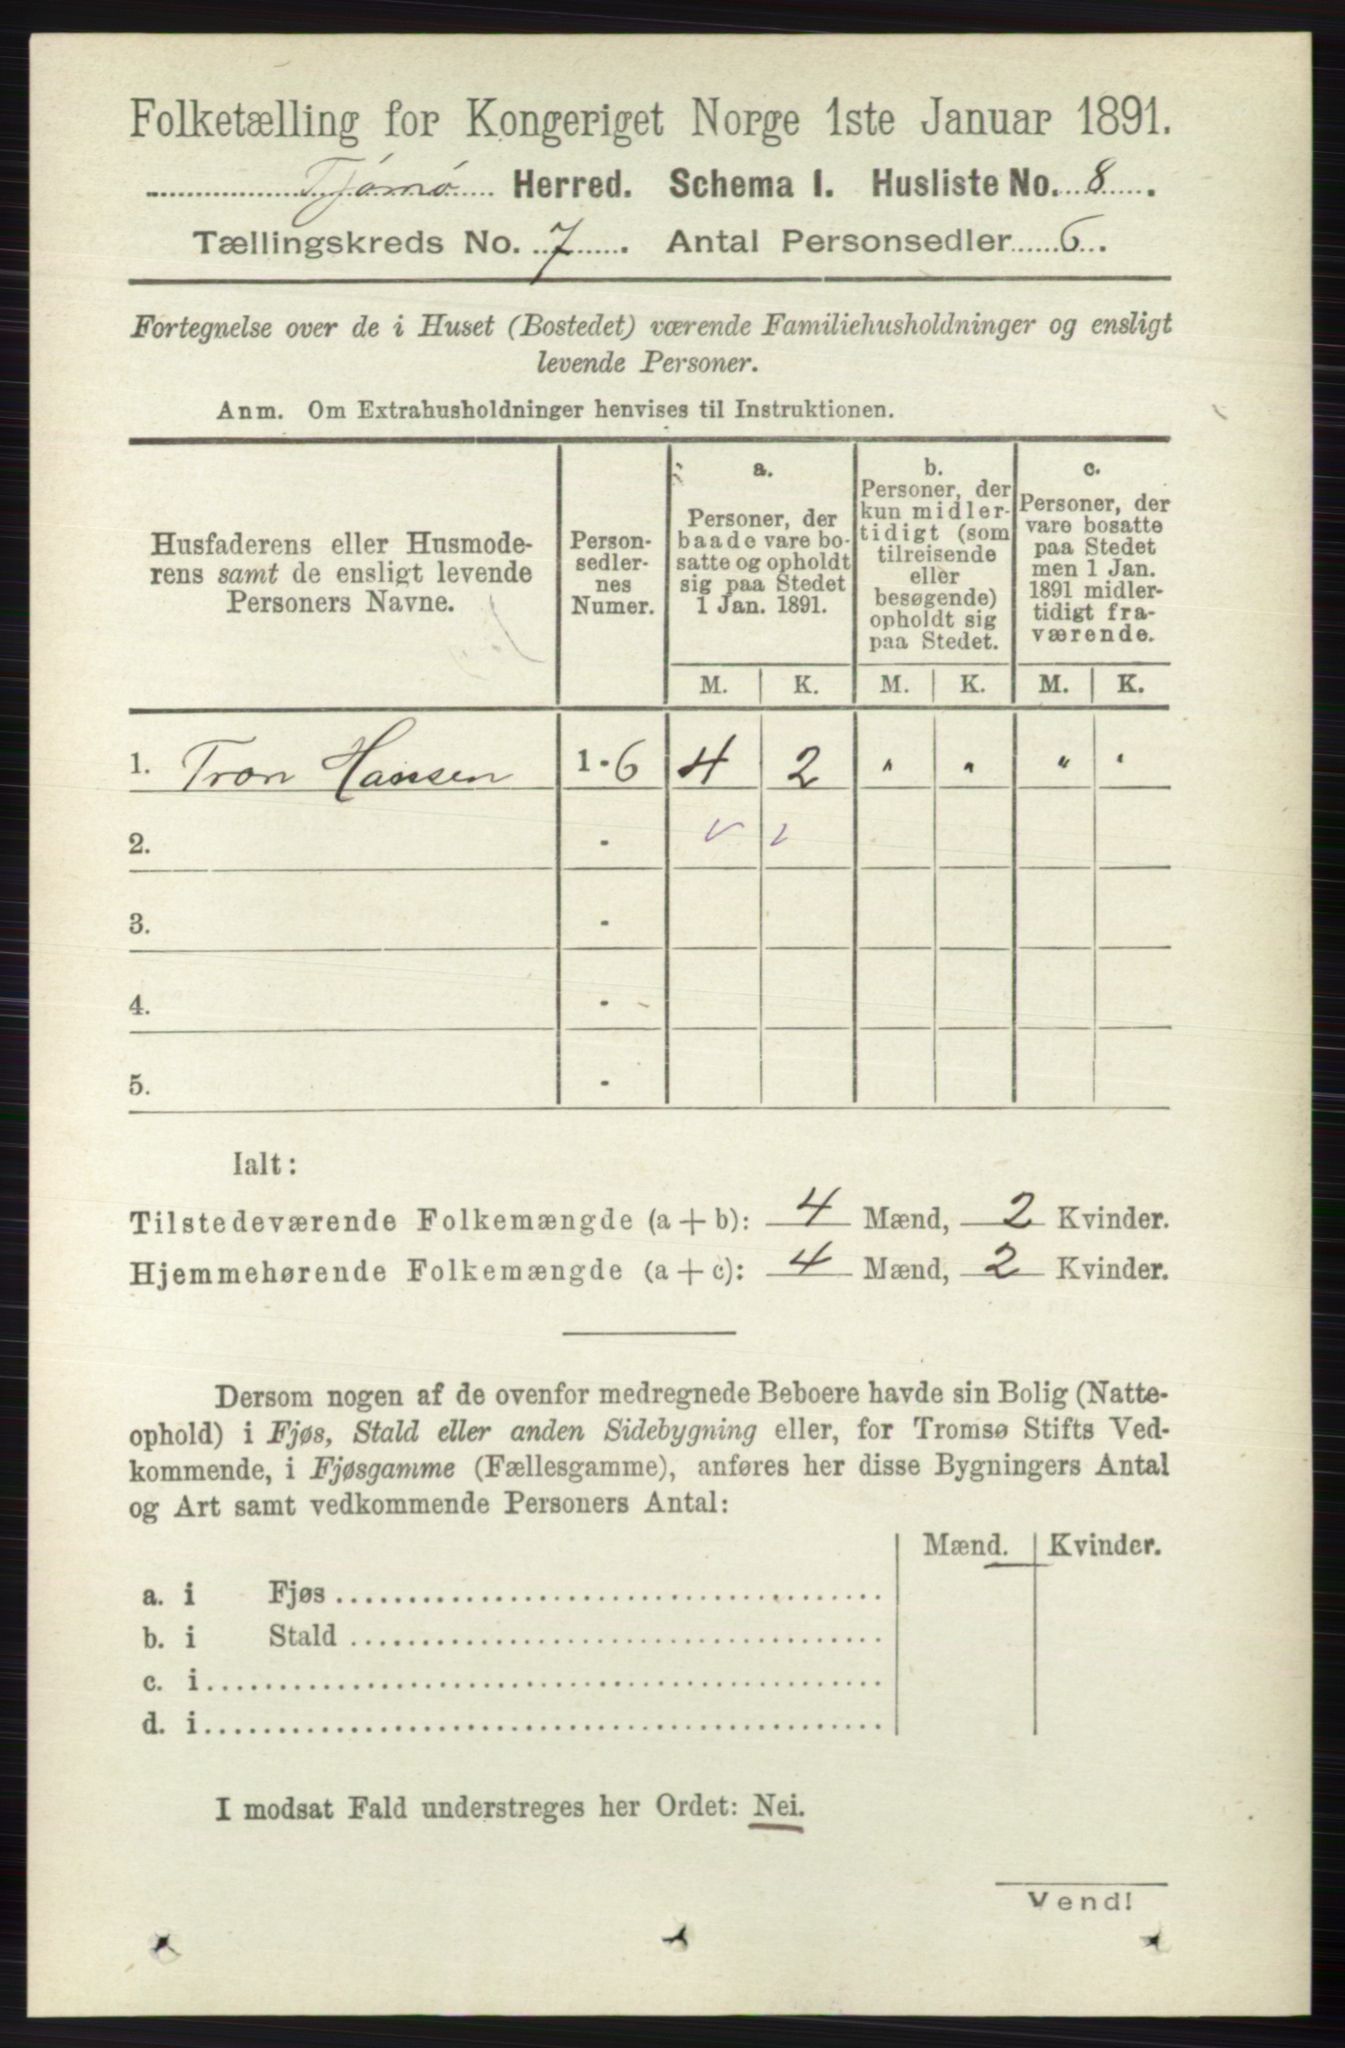 Folketælling for Kongeriget Norge 1ste Januar 1891.
Tjømø Herred. Schema I. Husliste No. 8.
Tællingskreds No. 7. Antal Personsedler 6.
Fortegnelse over de i Huset (Bostedet) værende Familiehusholdninger og ensligt
levende Personer.
Anm. Om Extrahusholdninger henvises til Instruktionen.
Husfaderens eller Husmode-
rens samt de ensligt levende
Personers Navne.
Person-
sedler-
nes
Numer.
a.
Personer, der
baade vare bo-
satte og opholdt
sig paa Stedet
1 Jan. 1891.
b.
Personer, der
kun midler-
tidigt (som
tilreisende
eller
besøgende)
opholdt sig
paa Stedet.
c.
Personer, der
vare bosatte
paa Stedet
men 1 Jan.
1891 midler-
tidigt fra-
værende.
M. K. M. K. M. K.
1. Tron Hansen 1 - 6 4 2 " " " "
2. -
3. -
4. -
5. -
Ialt:
Tilstedeværende Folkemængde (a + b): 4 Mænd, 2 Kvinder.
Hjemmehørende Folkemængde (a + c): 4 Mænd, 2 Kvinder.
Dersom nogen af de ovenfor medregnede Beboere havde sin Bolig (Natte-
ophold) i Fjøs, Stald eller anden Sidebygning eller, for Tromsø Stifts Ved-
kommende, i Fjøsgamme (Fællesgamme), anføres her disse Bygningers Antal
og Art samt vedkommende Personers Antal:
Mænd. Kvinder.
a. i Fjøs
b. i Stald
c. i
d. i
I modsat Fald understreges her Ordet: Nei.
Vend!